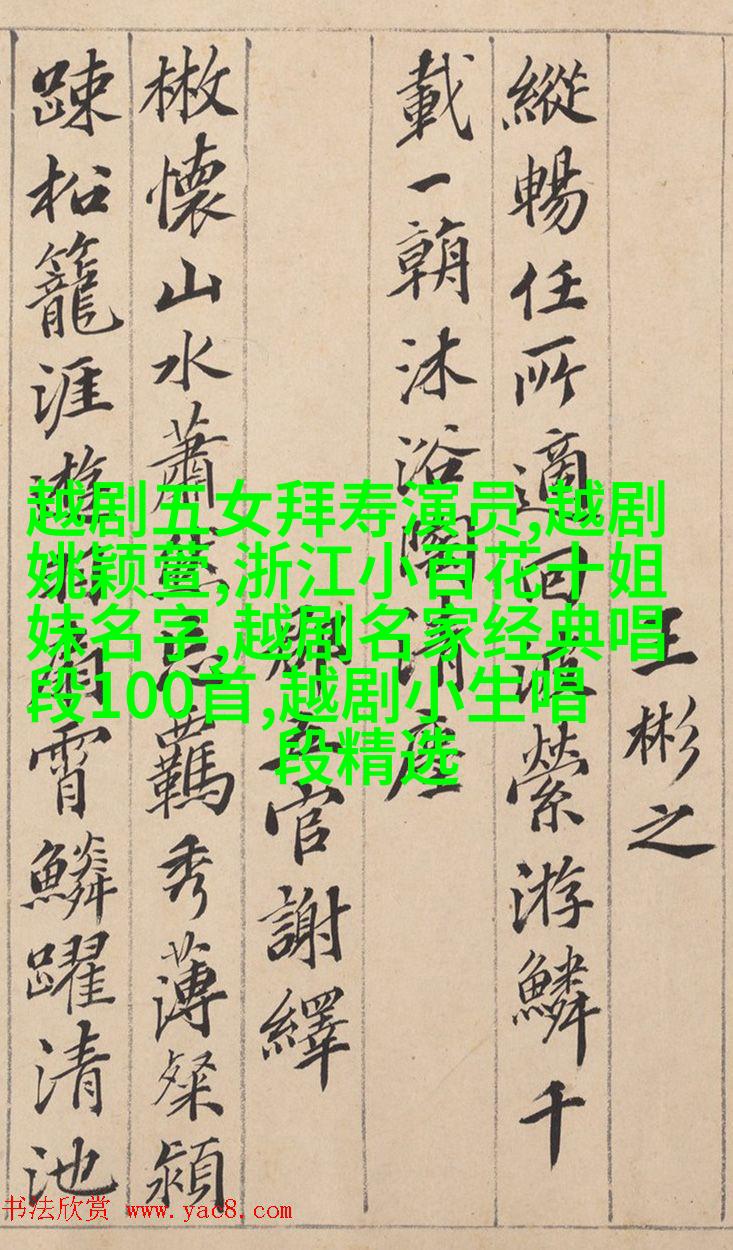 王彬之
縱暢任所適回波縈游鱗千
載一朝沐浴陶清塵
五官謝繹
散懷山水蕭然忘羈秀薄粲穎
踈松籠涯遊羽扇霄鱗躍清池
越剧五女拜寿演员,越剧
姚颖萱,浙江小百花十姐
妹名字,越剧名家经典唱
段100首,越剧小生唱
段精选
书法欣赏 www.yac8.com